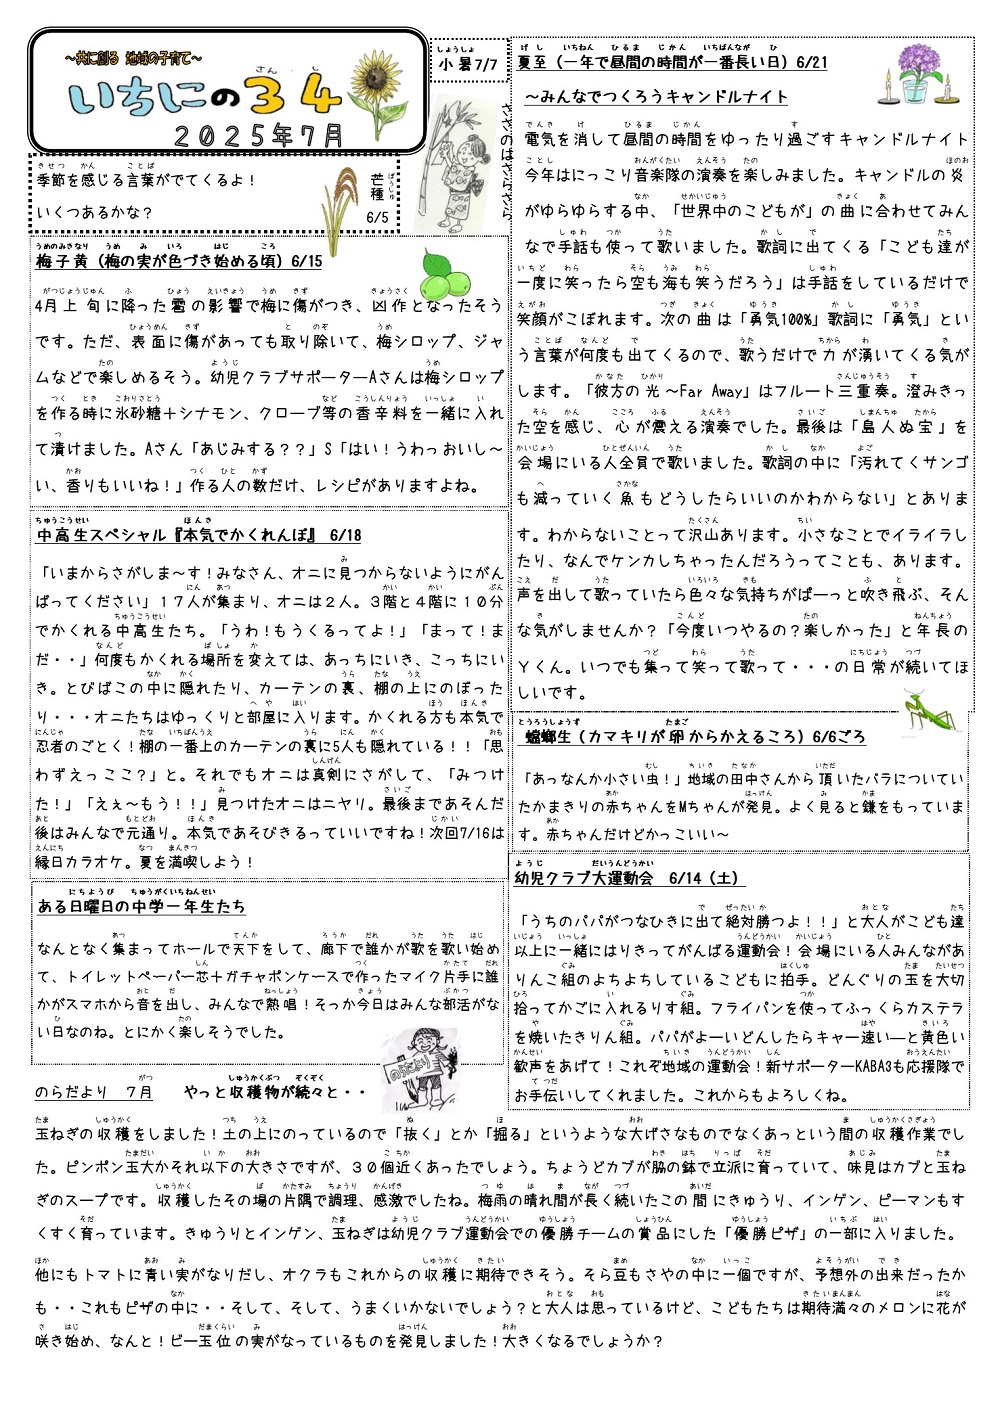 ～共に創る 地域の子育て～
いちにの３４
さん し
２０２５年７月
小暑7/7
ささのはさらさら
季節を感じる言葉がでてくるよ！
いくつあるかな？
芒種
6/5
梅子黄（梅の実が色づき始める頃）6/15
4月上旬に降った雹の影響で梅に傷がつき、凶作となったそう
です。ただ、表面に傷があっても取り除いて、梅シロップ、ジャ
ムなどで楽しめるそう。幼児クラブサポーターAさんは梅シロップ
を作る時に氷砂糖＋シナモン、クローブ等の香辛料を一緒に入れ
て漬けました。Aさん「あじみする？？」S「はい！うわっおいし～
い、香りもいいね！」作る人の数だけ、レシピがありますよね。
中高生スペシャル『本気でかくれんぼ』 6/18
「いまからさがしま～す！みなさん、オニに見つからないようにがん
ばってください」１７人が集まり、オニは２人。３階と４階に１０分
でかくれる中高生たち。「うわ！もうくるってよ！」「まって！ま
だ・・」何度もかくれる場所を変えては、あっちにいき、こっちにい
き。とびばこの中に隠れたり、カーテンの裏、棚の上にのぼった
り・・・オニたちはゆっくりと部屋に入ります。かくれる方も本気で
忍者のごとく！棚の一番上のカーテンの裏に5人も隠れている！！「思
わずえっここ？」と。それでもオニは真剣にさがして、「みつけ
た！」「えぇ～もう！！」見つけたオニはニヤリ。最後まであそんだ
後はみんなで元通り。本気であそびきるっていいですね！次回7/16は
縁日カラオケ。夏を満喫しよう！
ある日曜日の中学一年生たち
なんとなく集まってホールで天下をして、廊下で誰かが歌を歌い始め
て、トイレットペーパー芯＋ガチャポンケースで作ったマイク片手に誰
かがスマホから音を出し、みんなで熱唱！そっか今日はみんな部活がな
い日なのね。とにかく楽しそうでした。
夏至（一年で昼間の時間が一番長い日）6/21
～みんなでつくろうキャンドルナイト
電気を消して昼間の時間をゆったり過ごすキャンドルナイト
今年はにっこり音楽隊の演奏を楽しみました。キャンドルの炎
がゆらゆらする中、「世界中のこどもが」の曲に合わせてみん
なで手話も使って歌いました。歌詞に出てくる「こども達が
一度に笑ったら空も海も笑うだろう」は手話をしているだけで
笑顔がこぼれます。次の曲は「勇気100%」歌詞に「勇気」とい
う言葉が何度も出てくるので、歌うだけで力が湧いてくる気が
します。「彼方の光～Far Away」はフルート三重奏。澄みきっ
た空を感じ、心が震える演奏でした。最後は「島人ぬ宝」を
会場にいる人全員で歌いました。歌詞の中に「汚れてくサンゴ
も減っていく魚もどうしたらいいのかわからない」とありま
す。わからないことって沢山あります。小さなことでイライラし
たり、なんでケンカしちゃったんだろうってことも、あります。
声を出して歌っていたら色々な気持ちがぱーっと吹き飛ぶ、そん
な気がしませんか？「今度いつやるの？楽しかった」と年長の
Yくん。いつでも集って笑って歌って・・・の日常が続いてほ
しいです。
蟷螂生（カマキリが卵からかえるころ）6/6ごろ
「あっなんか小さい虫！」地域の田中さんから頂いたバラについてい
たかまきりの赤ちゃんをMちゃんが発見。よく見ると鎌をもっていま
す。赤ちゃんだけどかっこいい～
幼児クラブ大運動会 6/14（土）
「うちのパパがつなひきに出て絶対勝つよ！！」と大人がこども達
以上に一緒にはりきってがんばる運動会！会場にいる人みんながあ
りんこ組のよちよちしているこどもに拍手。どんぐりの玉を大切
拾ってかごに入れるりす組。フライパンを使ってふっくらカステラ
を焼いたきりん組。パパがよーいどんしたらキャー速い―と黄色い
歓声をあげて！これぞ地域の運動会！新サポーターKABA3も応援隊で
お手伝いしてくれました。これからもよろしくね。
のらだより
のらだより ７月 やっと収穫物が続々と・・
玉ねぎの収穫をしました！土の上にのっているので「抜く」とか「掘る」というような大げさなものでなくあっという間の収穫作業でし
た。ピンポン玉大かそれ以下の大きさですが、３０個近くあったでしょう。ちょうどカブが脇の鉢で立派に育っていて、味見はカブと玉ね
ぎのスープです。収穫したその場の片隅で調理、感激でしたね。梅雨の晴れ間が長く続いたこの間にきゅうり、インゲン、ピーマンもす
くすく育っています。きゅうりとインゲン、玉ねぎは幼児クラブ運動会での優勝チームの賞品にした「優勝ピザ」の一部に入りました。
他にもトマトに青い実がなりだし、オクラもこれからの収穫に期待できそう。そら豆もさやの中に一個ですが、予想外の出来だったか
も・・これもピザの中に・・そして、そして、うまくいかないでしょう？と大人は思っているけど、こどもたちは期待満々のメロンに花が
咲き始め、なんと！ビー玉位の実がなっているものを発見しました！大きくなるでしょうか？